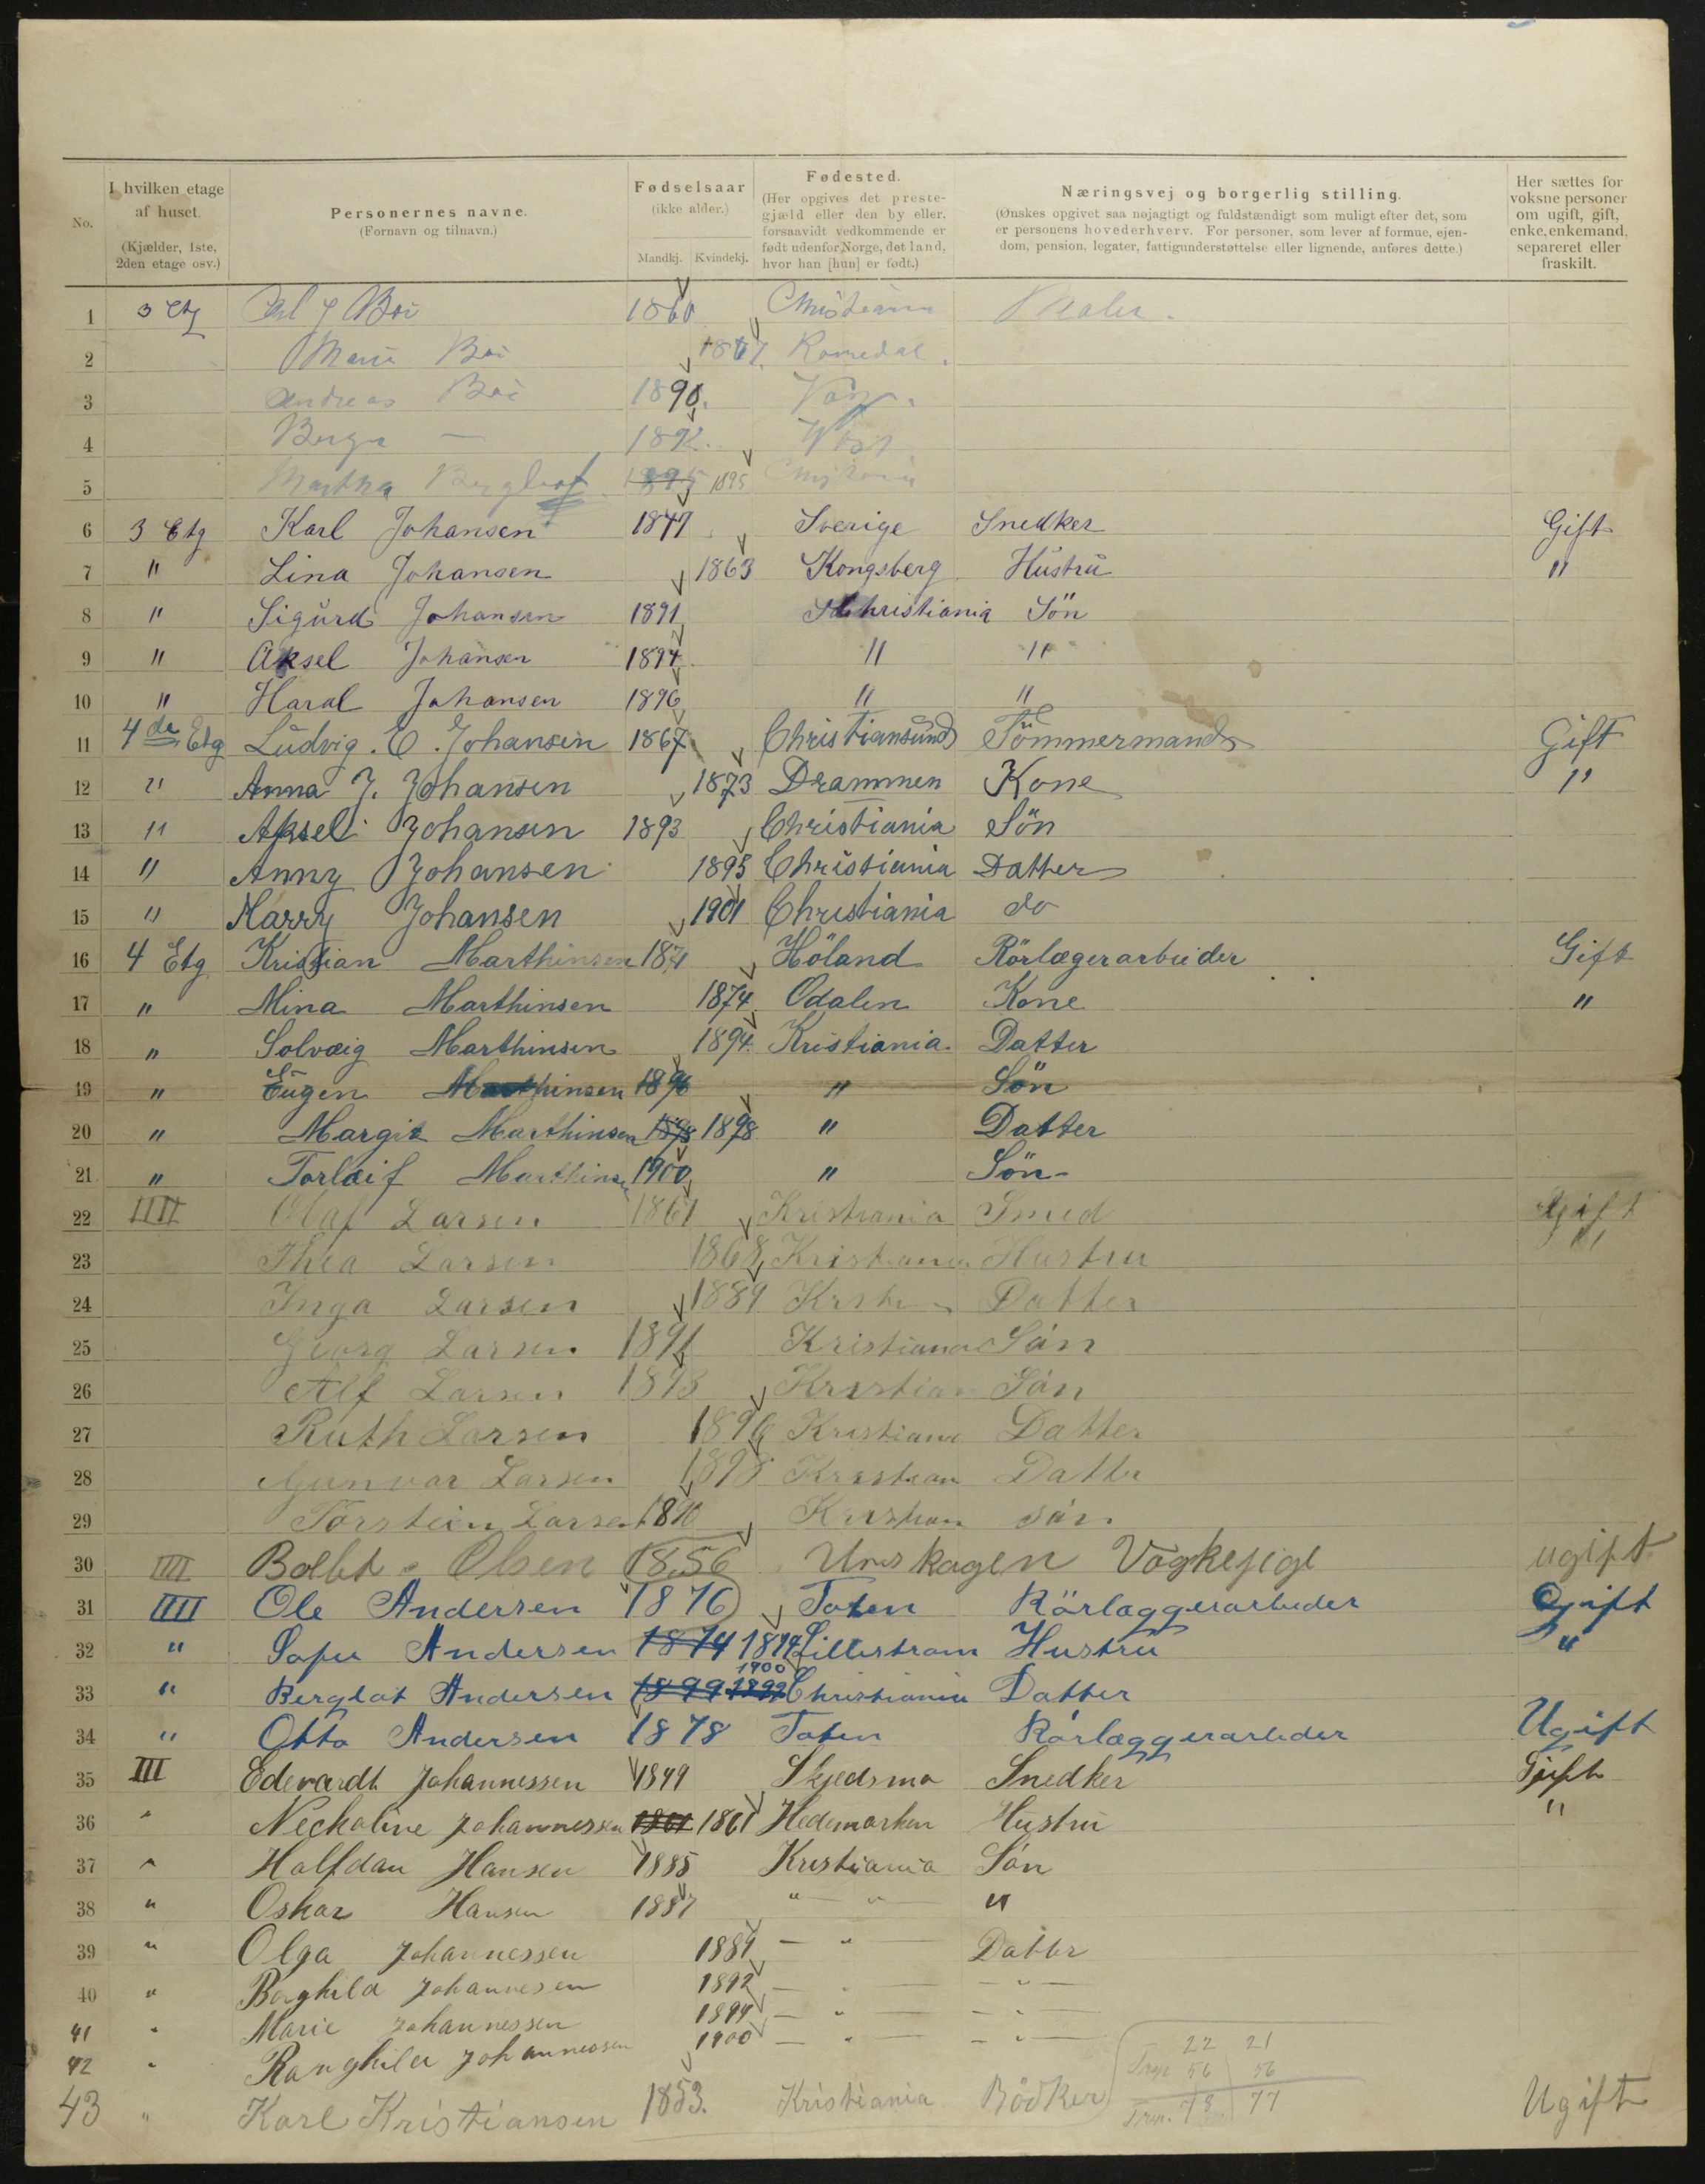 No. | I hvilken etage af huset. (Kjælder, 1ste, 2den etage osv.) | Personernes navne. (Fornavn og tilnavn.) | Fødselsaar (ikke alder.) Mandkj. Kvindekj. | Fødested. (Her opgives det prestegjæld eller den by eller, forsaavidt vedkommende er født udenfor Norge, det land, hvor han [hun] er født.) | Næringsvej og borgerlig stilling. (Ønskes opgivet saa nøjagtigt og fuldstændigt som muligt efter det, som er personens hovederhverv. For personer, som lever af formue, ejendom, pension, legater, fattigunderstøttelse eller lignende, anføres dette.) | Her sættes for voksne personer om ugift, gift, enke, enkemand, separeret eller fraskilt.
1 3 Etg 1860 Christiania Maler.
2 Marie Romedal.
3 Andreas 1890.
4 1892.
5 Martha 1895 1895
6 3 Etg Karl Johansen 1847 Sverige Snedker Gift
7 " Lina Johansen 1863 Kongsberg Hustru "
8 " Sigurd Johansen 1891 Christiania Sön
9 " Aksel Johansen 1894 " "
10 " Haral Johansen 1896 " "
11 4de Etg Ludvig. E. Johansen 1867 Christiansund Tömmermand Gift
12 " Anna J. Johansen 1873 Drammen Kone "
13 " Aksel Johansen 1893 Christiania Sön
14 " Anny Johansen 1895 Christiania Datter
15 " Harry Johansen 1901 Christiania do
16 4 Etg Kristian Marthinsen 1871 Höland Rörlægerarbeider Gift
17 " Mina Marthinsen 1874 Odalen Kone "
18 " Solvæig Marthinsen 1894 Kristiania Datter
19 " Eugen Marthinsen 1896 " Sön
20 " Margit Marthinsen 1898 1898 " Datter
21 " Torlæif Marthinsen 1900 " Sön
22 IIII Olaf Larsen 1867 Kristiania Smed Gift
23 Thea Larsen 1868 Kristiania Hustru "
24 Inga Larsen 1889 Datter
25 Georg Larsen 1891 Kristiania Sön
26 Alf Larsen 1893 Kristian Sön
27 Ruth Larsen 1896 Kristiania Datter
28 Gunvor Larsen 1898 Kristian Datter
29 Torstein Larsen Kristian Sön
30 IIII Olsen 1856 Urskogen ugift
31 IIII Ole Andersen 1876 Toten Rörlæggerarbeider Gift
32 " Sofie Andersen 1874 1874 Lillestrøm Hustru "
33 " Bergliot Andersen 1899 1899 1900 Christiania Datter
34 " Otto Andersen 1878 Toten Rörlæggerarbeider Ugift
35 III Edevardt Johannessen 1849 Skjedsmo Snedker Gift
36 " Nickoline Johannessen 1861 1861 Hedemarken Hustru "
37 " Halfdan Hansen 1885 Kristiania Sön
38 " Oskar Hansen 1887 " " "
39 " Olga Johannessen 1889 — " — Datter
40 " Borghild Johannesen 1892 — " — — " —
41 " Marie Johannessen 1894 — " — — " —
42 " Ranghild Johannessen 1900 — " — — " —
43 " Karl Kristiansen 1853. Kristiania Bödker Ugift
22 21
56 56
78 77